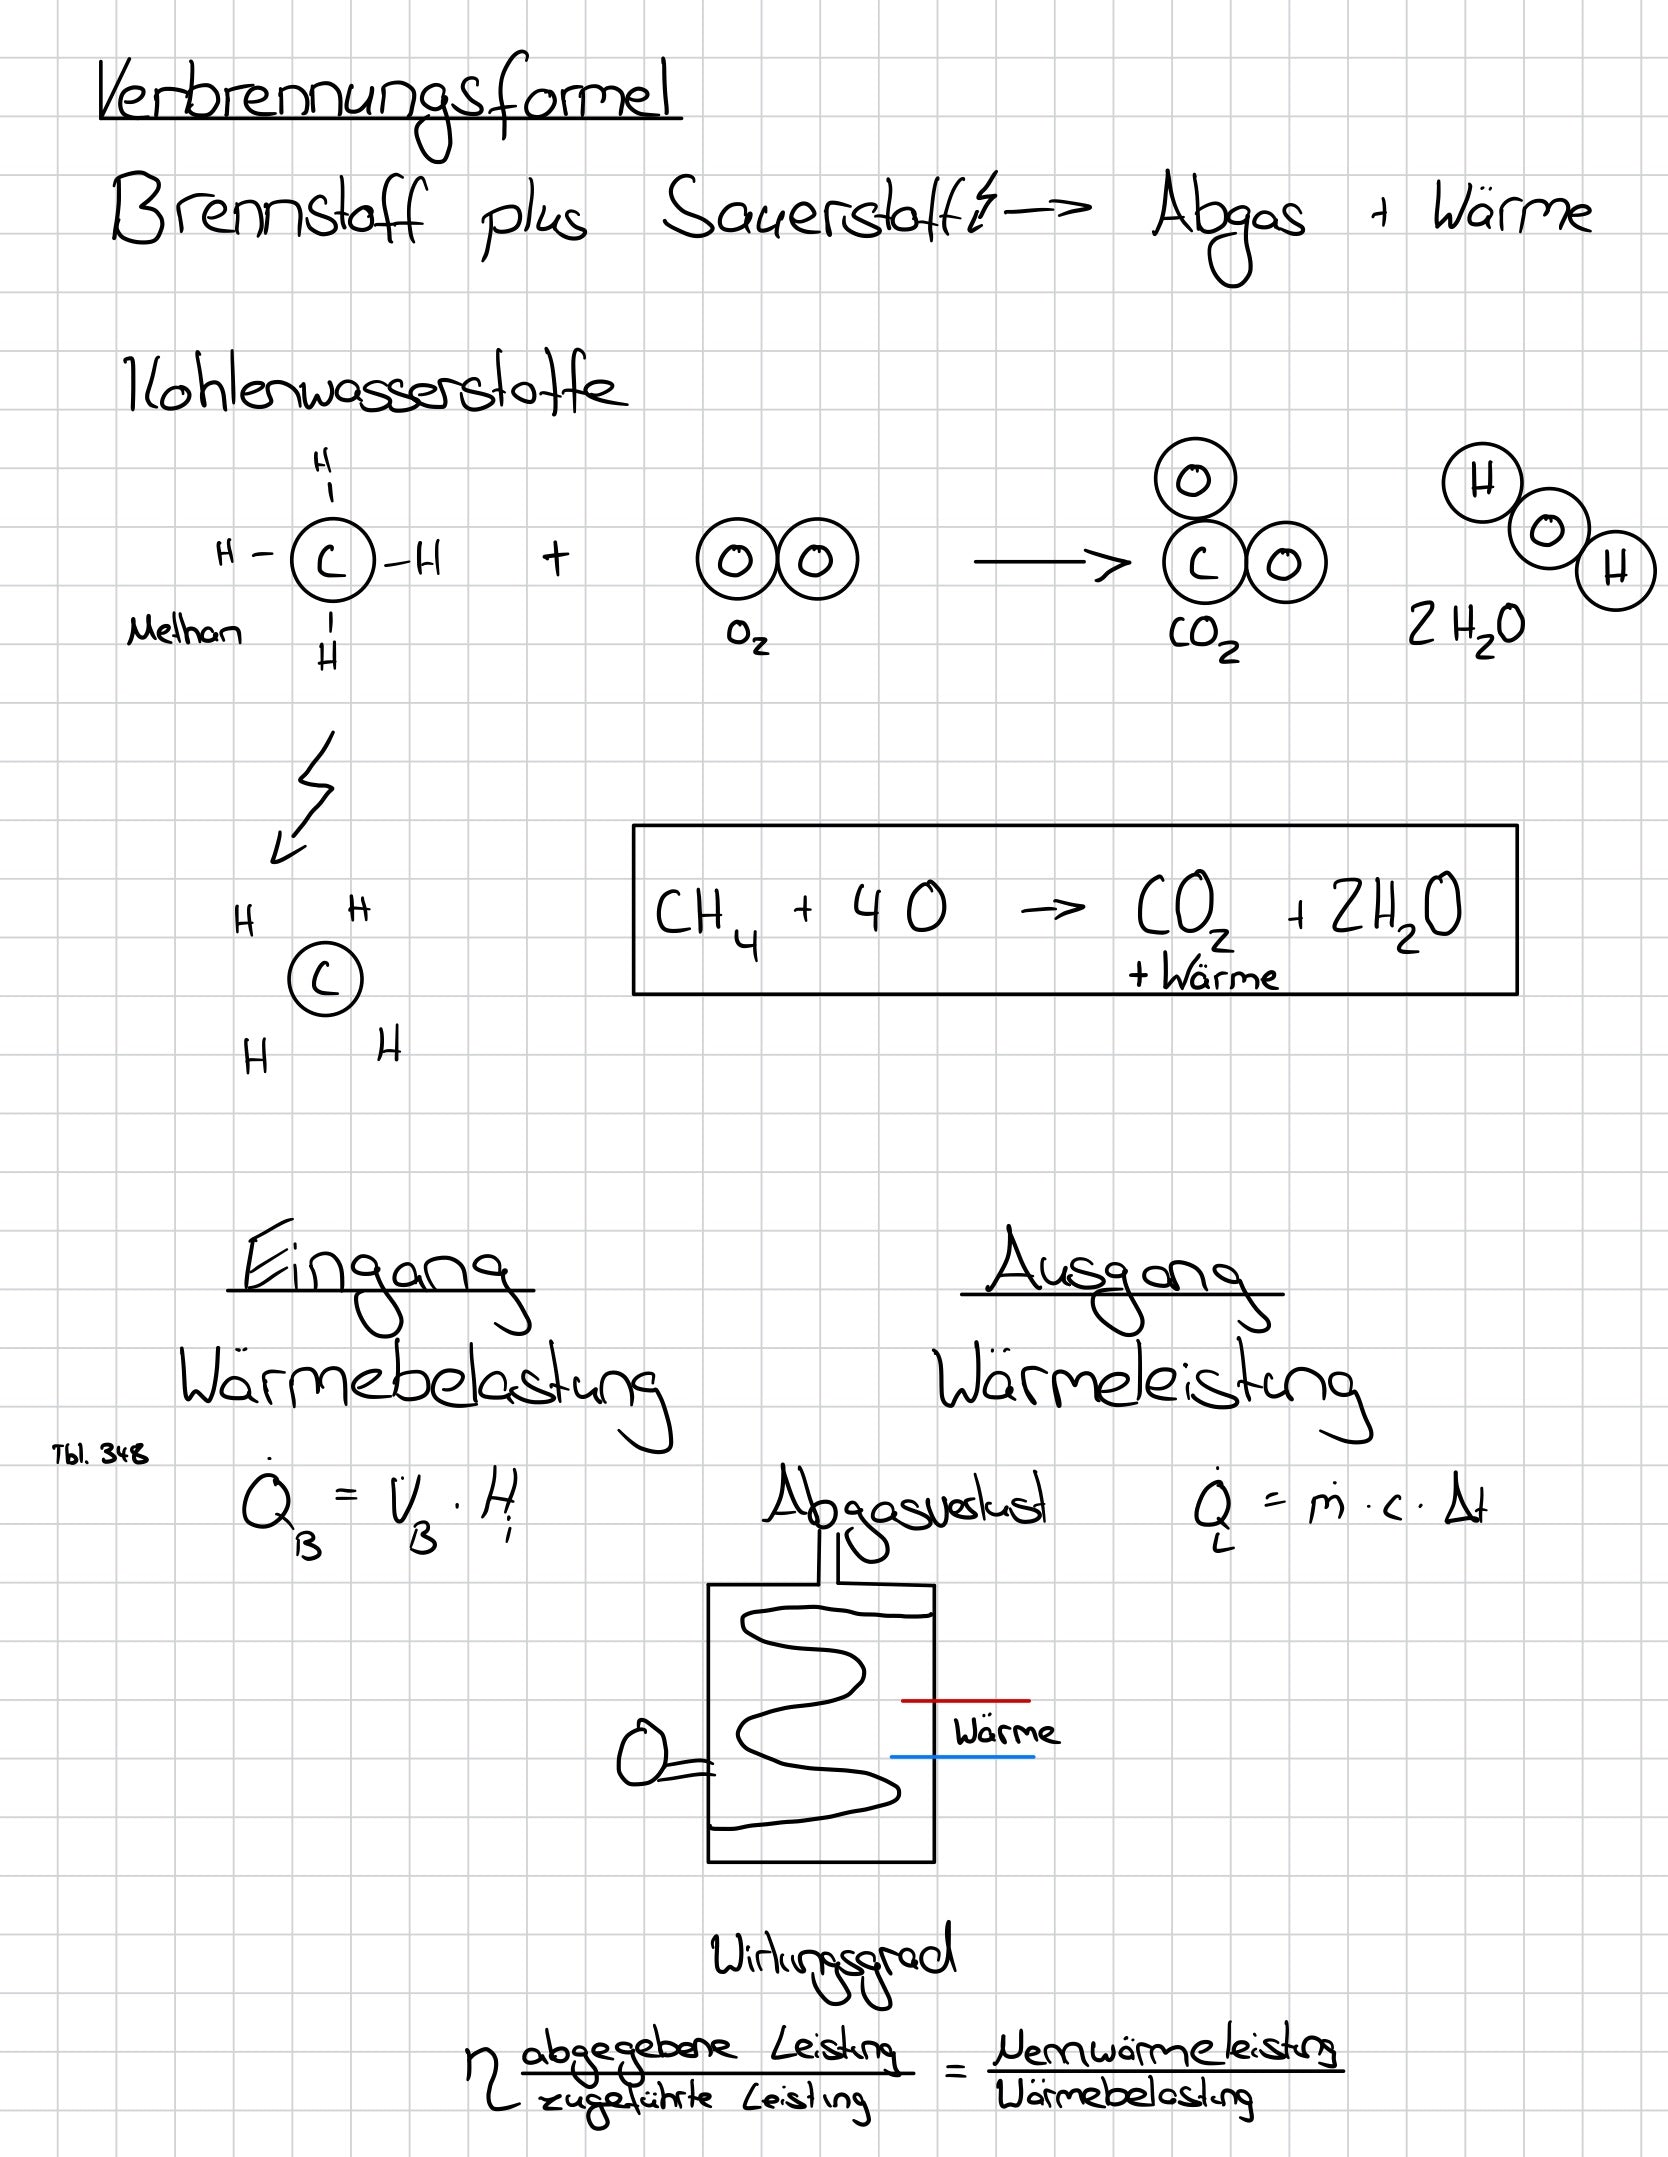 Verbrennungsformel
Brennstoff plus Sauerstoff → Abgas + Wärme
Kohlenwasserstoffe
H
H - C - H + O O → O C O H O H
H
Methan O₂ CO₂ 2 H₂O
H H
C
H H
CH₄ + 4 O → CO₂ + 2H₂O
+ Wärme
Eingang Ausgang
Wärmebelastung Wärmeleistung
Tbl. 348
Q̇_B = V̇_B · H_i Abgasverlust Q̇_L = ṁ · c · Δt
Wärme
Wirkungsgrad
η abgegebene Leistung / zugeführte Leistung = Nennwärmeleistung / Wärmebelastung